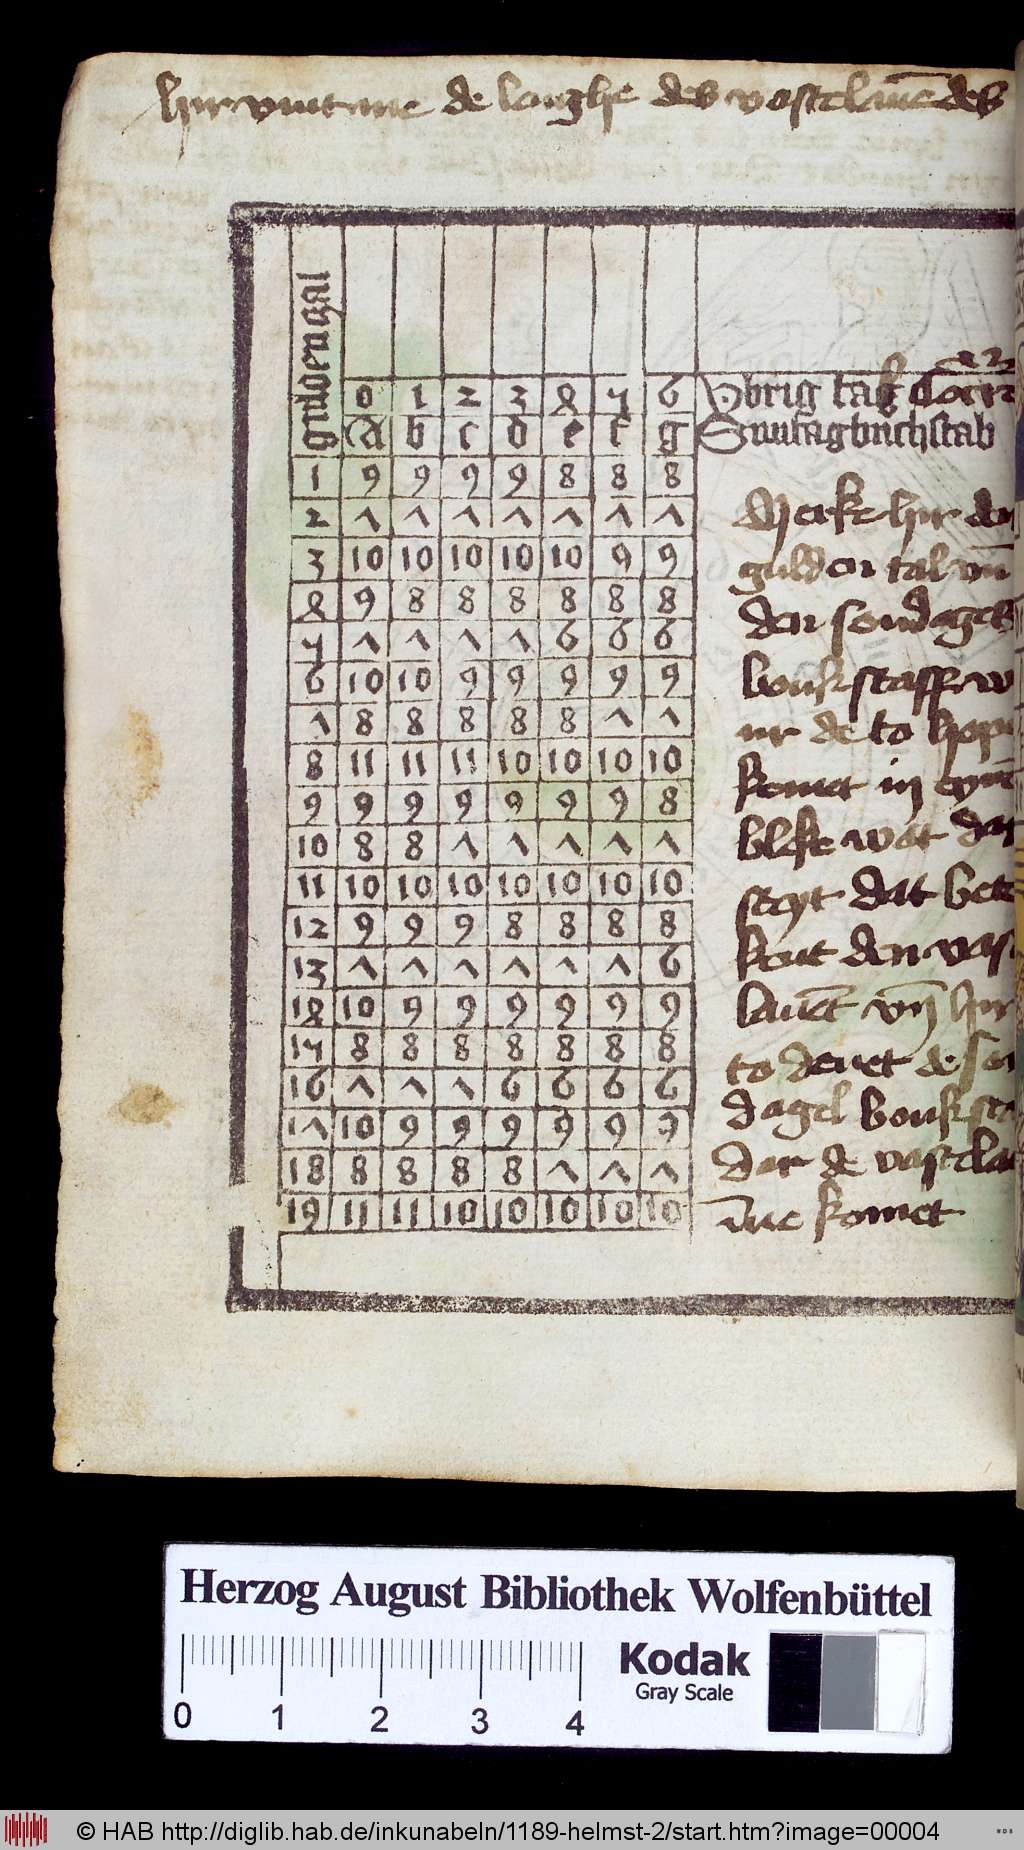 hir vmtme de lenghe des vastelauēdes
guldenzal
0 1 2 3 4 5 6 Vbrig tag
A b c d e f g Suntagbuchstab
1 9 9 9 9 8 8 8
2 7 7 7 7 7 7 7
3 10 10 10 10 10 9 9
4 9 8 8 8 8 8 8
5 7 7 7 7 6 6 6
6 10 10 9 9 9 9 9
7 8 8 8 8 8 7 7
8 11 11 11 10 10 10 10
9 9 9 9 9 9 9 8
10 8 8 7 7 7 7 7
11 10 10 10 10 10 10 10
12 9 9 9 8 8 8 8
13 7 7 7 7 7 7 6
14 10 9 9 9 9 9 9
15 8 8 8 8 8 8 8
16 7 7 7 6 6 6 6
17 10 9 9 9 9 9 9
18 8 8 8 8 7 7 7
19 11 11 10 10 10 10 10
Merke hir den
gulden tal vn̄
den sondages
boukstaff w
ur de to hope
komet in eynē
bleke wat dar
steyt dat bete
kent den vast
lauēt vn̄ hir
to denet de son
dagel bouksta
dar de vastela
uēne komet
Herzog August Bibliothek Wolfenbüttel
Kodak
Gray Scale
0 1 2 3 4
© HAB http://diglib.hab.de/inkunabeln/1189-helmst-2/start.htm?image=00004